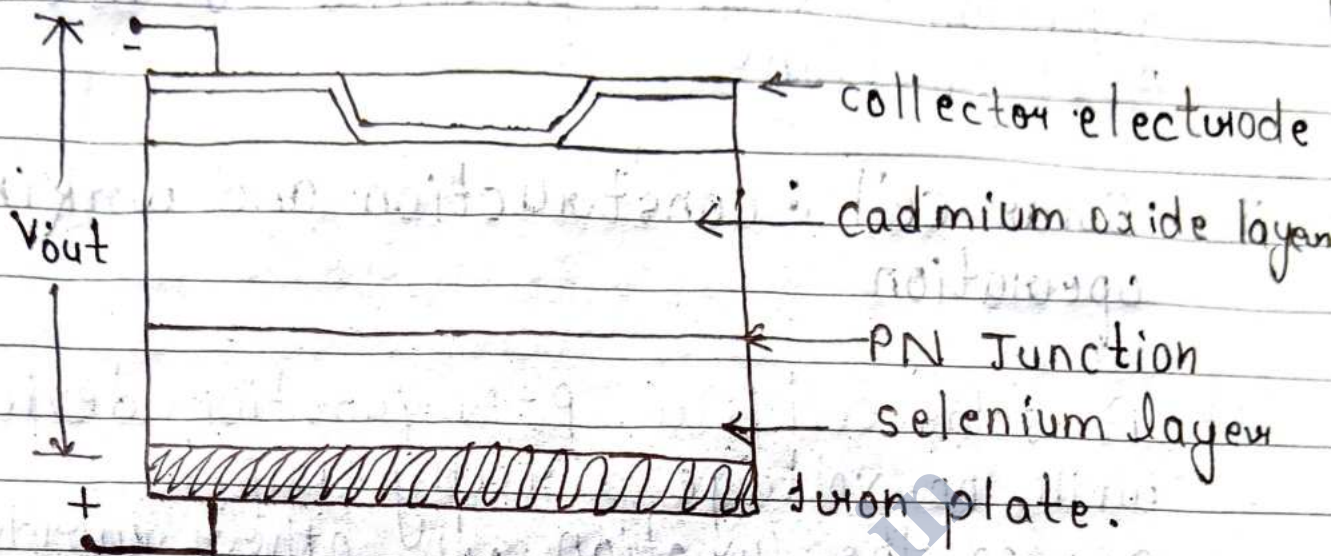 -
collector electrode
cadmium oxide layer
Vout
PN Junction
selenium layer
+
Iron plate.